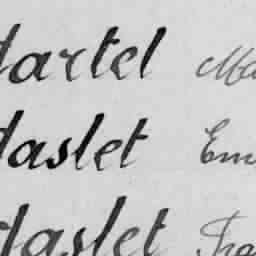 artel Ma
aslet Em
aslet Fra